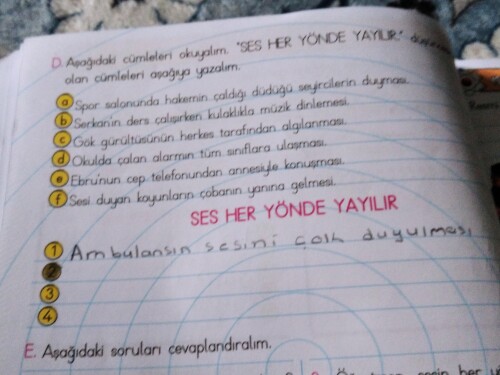 D. Aşağıdaki cümleleri okuyalım. "SES HER YÖNDE YAYILIR."
olan cümleleri aşağıya yazalım.
a Spor salonunda hakemin çaldığı düdüğü seyircilerin duyması.
b Serkan'ın ders çalışırken kulaklıkla müzik dinlemesi.
c Gök gürültüsünün herkes tarafından algılanması.
d Okulda çalan alarmın tüm sınıflara ulaşması.
e Ebru'nun cep telefonundan annesiyle konuşması.
f Sesi duyan koyunların çobanın yanına gelmesi.
SES HER YÖNDE YAYILIR
1 Ambulansın sesini çolk duyulması
2
3
4
E. Aşağıdaki soruları cevaplandıralım.